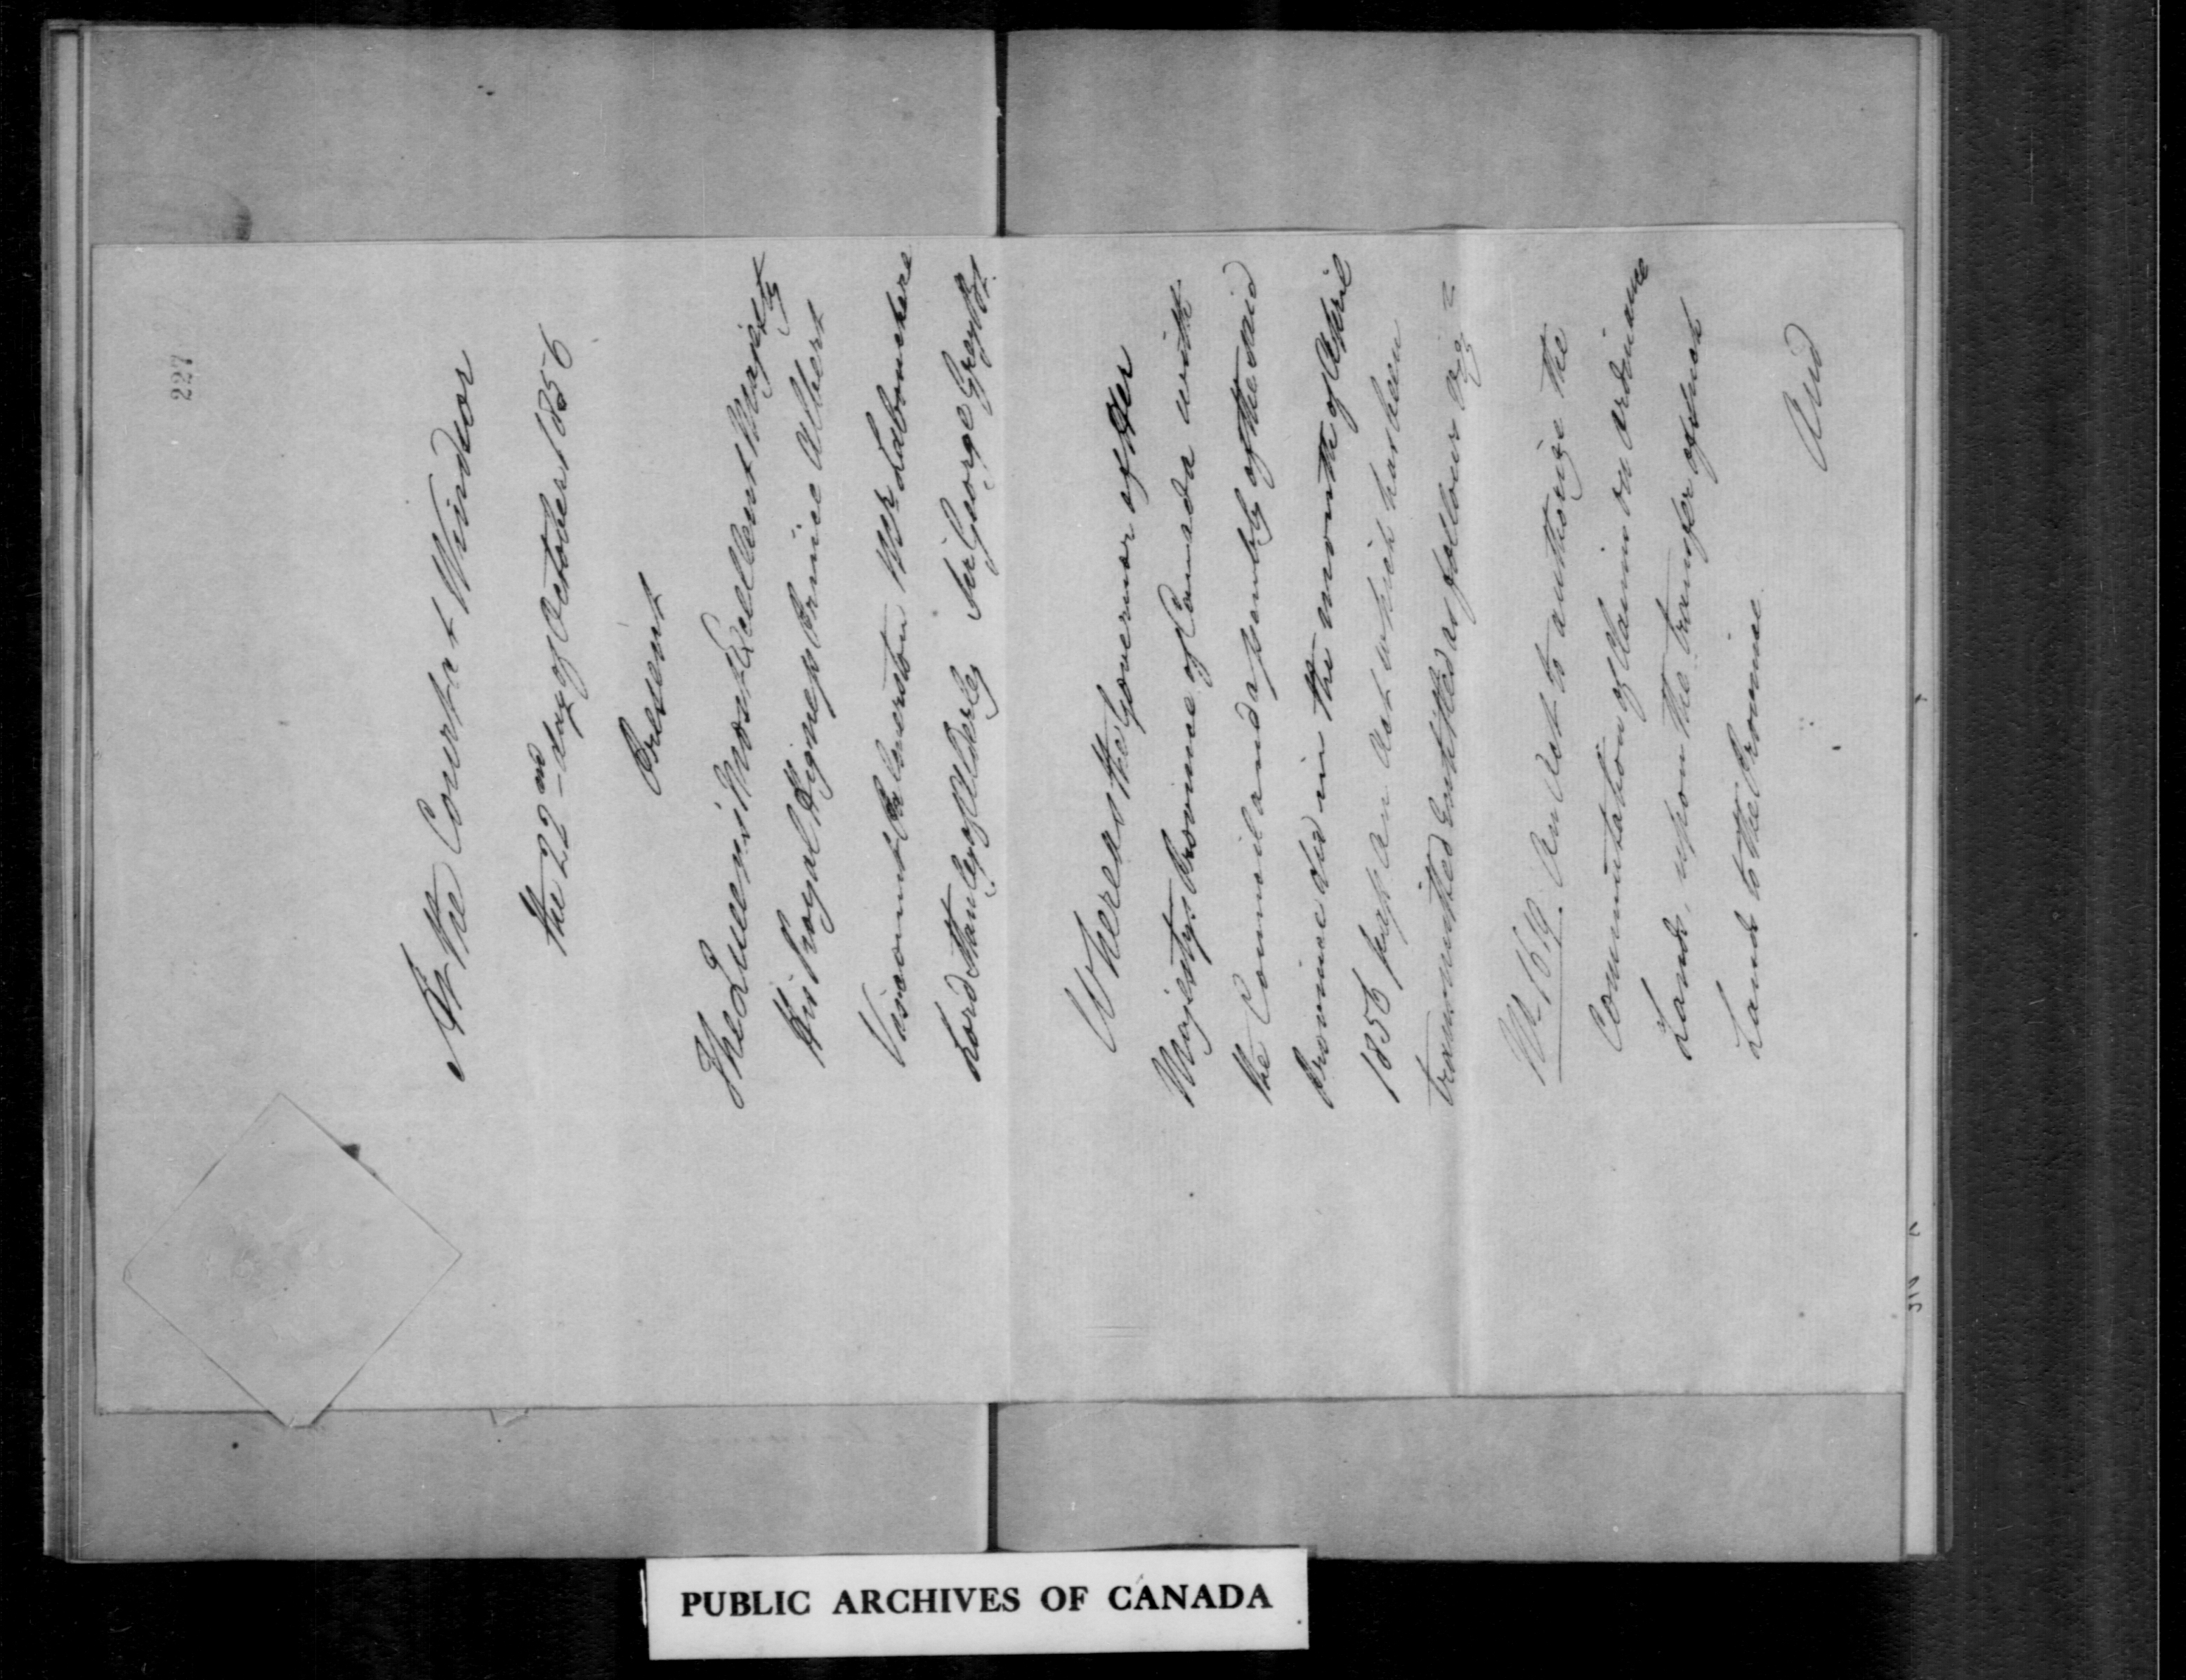 227
At the Court at Windsor
the 22nd day of October 1856
Present
The Queen's Most Excellent Majesty
His Royal Highness Prince Albert
Viscount Palmerston Mr Labouchere
Lord Stanley of Alderley Sir George Grey Bt.
Whereas the Governor of Her
Majesty's Province of Canada with
the Council and Assembly of the said
Province did in the month of April
1856 pass an Act which has been
transmitted Entitled as follows viz=
No 1619. An Act to authorize the
Commutation of Claims on Ordnance
Lands, upon the transfer of such
Lands to the Province.
And
PUBLIC ARCHIVES OF CANADA